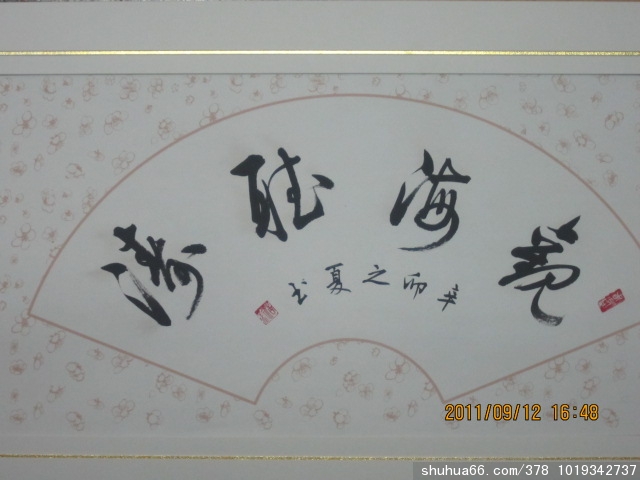 觀海聽濤
辛卯之夏书
2011/09/12 16:48
shuhua66.com/378 1019342737